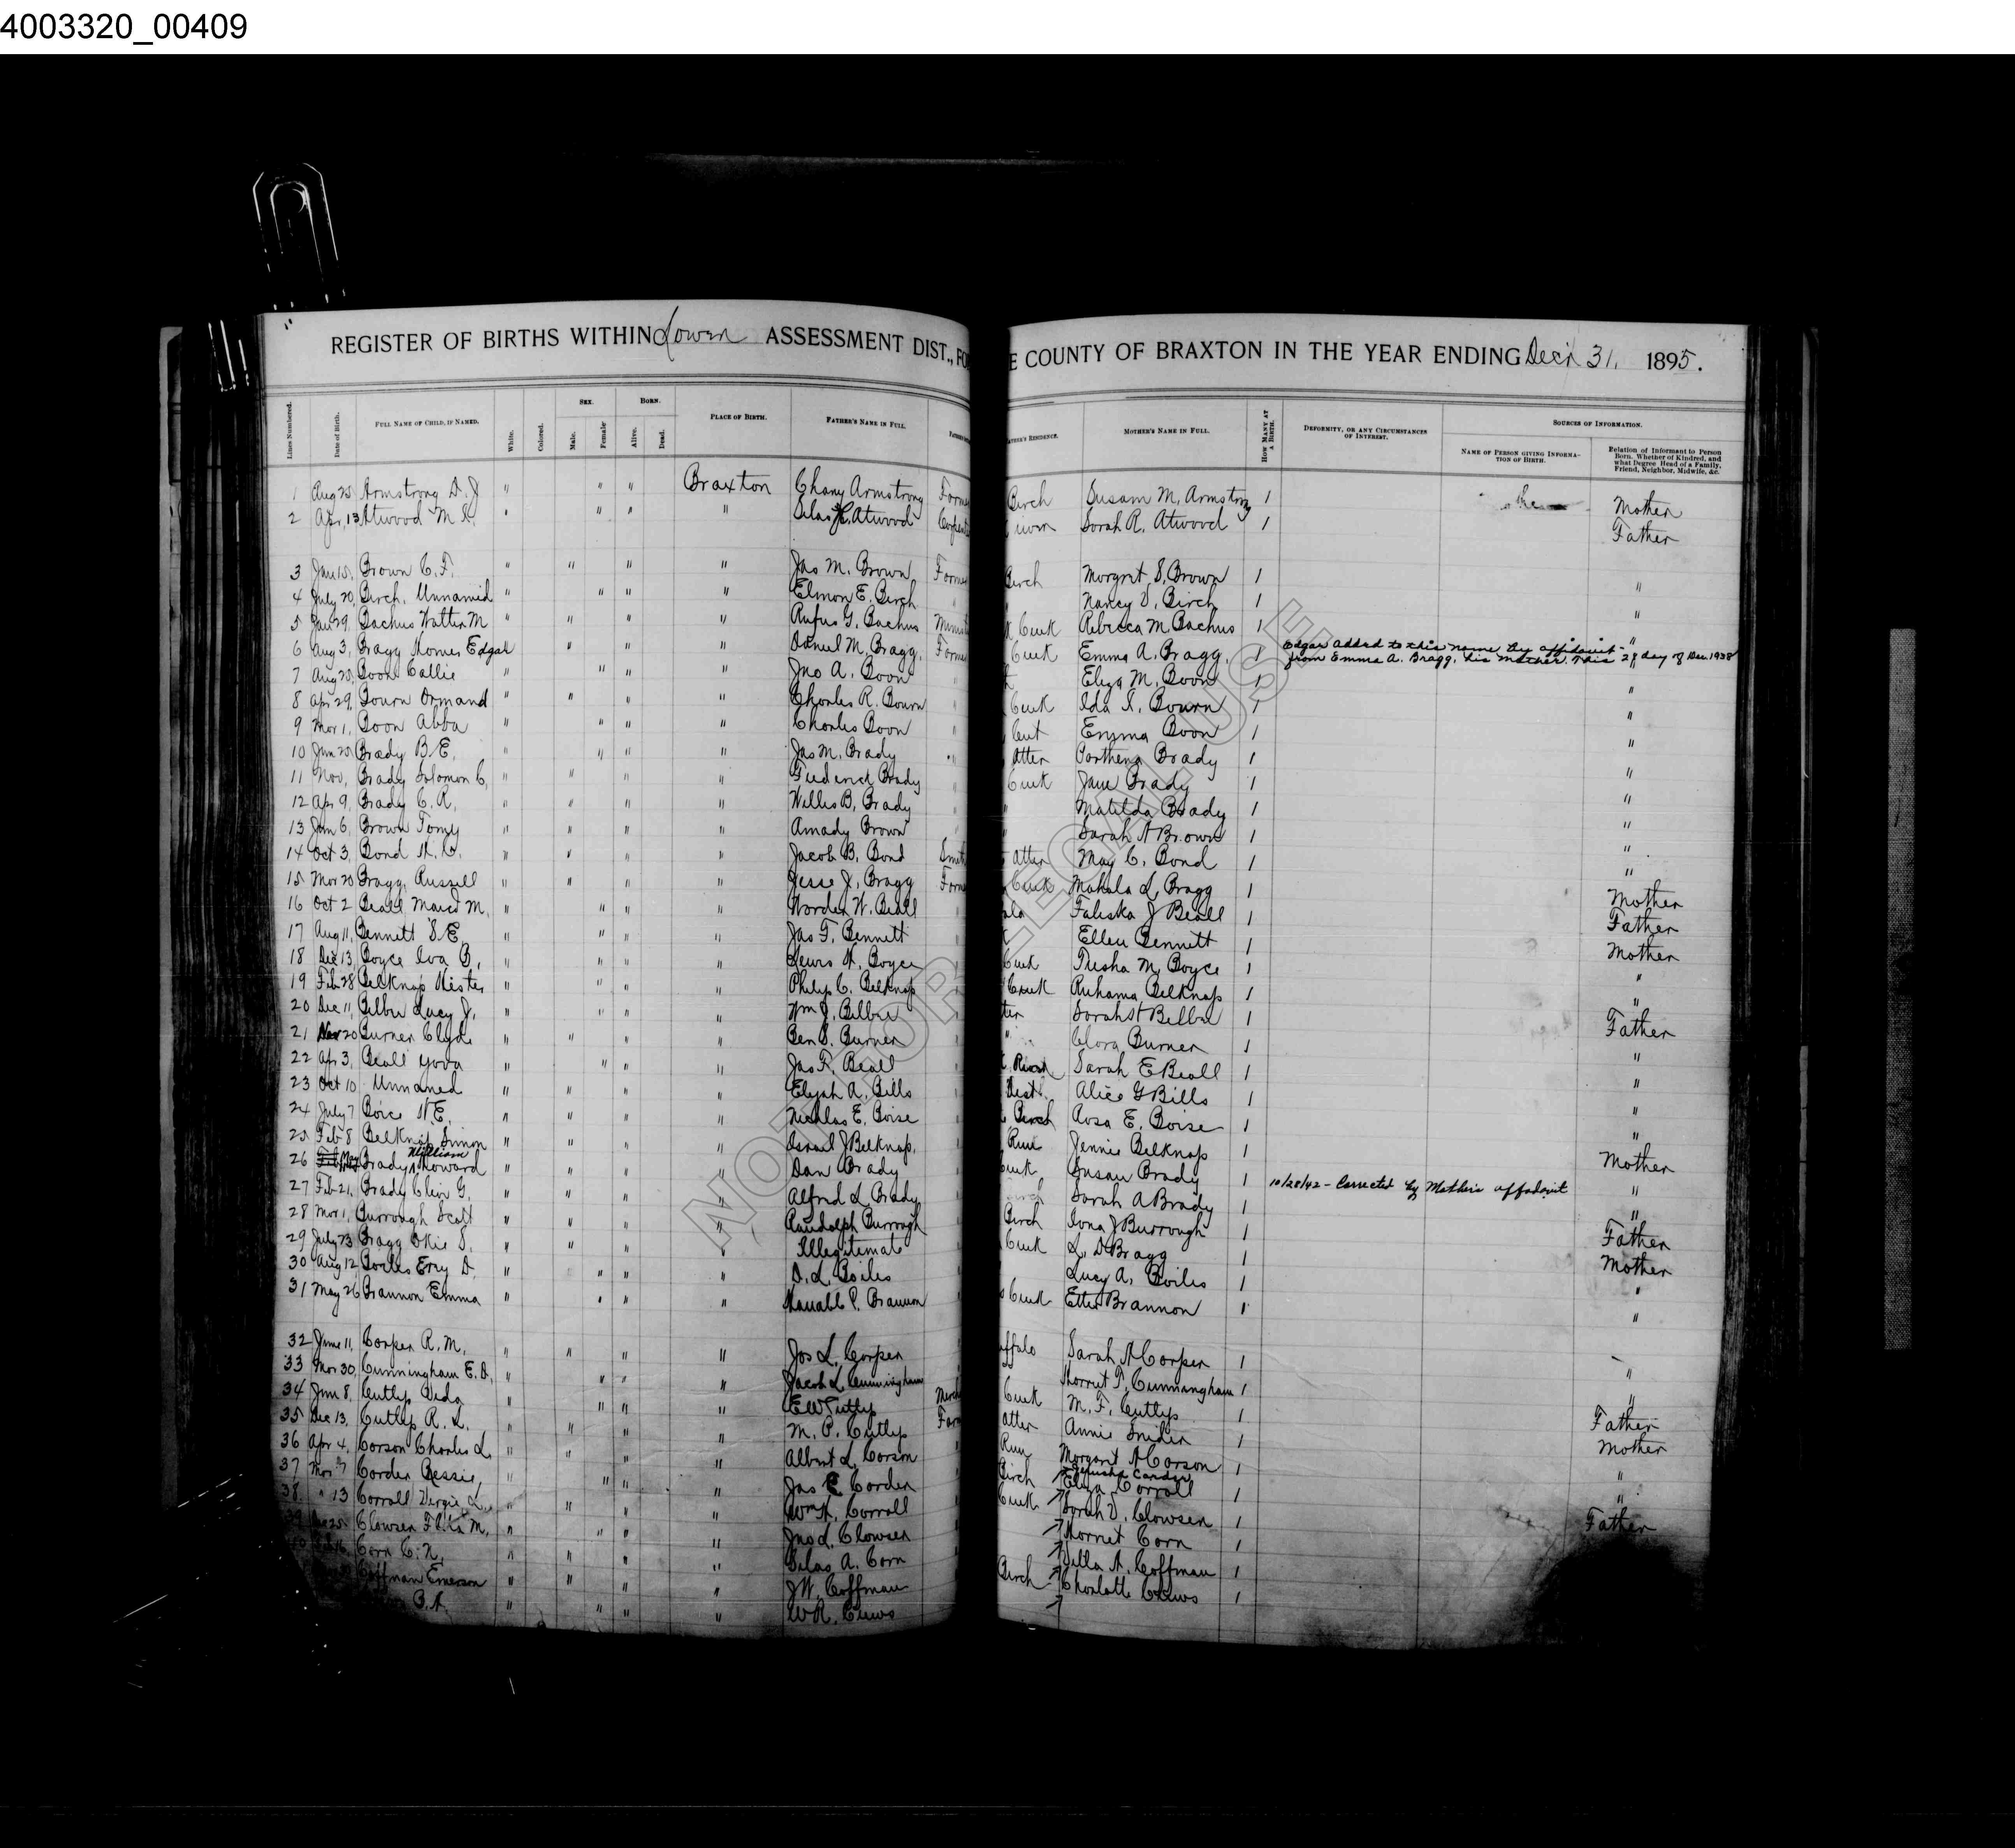 4003320_00409
REGISTER OF BIRTHS WITHIN Lower ASSESSMENT DIST., FO
E COUNTY OF BRAXTON IN THE YEAR ENDING Dec'r 31, 1895.
Lines Numbered. Date of Birth. FULL NAME OF CHILD, IF NAMED. White. Colored. SEX. Male. Female. BORN. Alive. Dead. PLACE OF BIRTH. FATHER'S NAME IN FULL.
ATHER'S RESIDENCE. MOTHER'S NAME IN FULL. HOW MANY AT A BIRTH. DEFORMITY, OR ANY CIRCUMSTANCES OF INTEREST. SOURCES OF INFORMATION. NAME OF PERSON GIVING INFORMATION OF BIRTH. Relation of Informant to Person Born. Whether of Kindred, and what Degree Head of a Family, Friend, Neighbor, Midwife, &c.
1 Aug 25 Armstrong D. J " " " Braxton Chany Armstrong Farme Birch Susan M. Armstrong 1 Mother
2 Apr, 13 Atwood M. " " " " Silas Atwood Carpent Sarah R. Atwood 1 Father
3 Jan 15, Brown C. F. " " " " Jas M. Brown Farme Birch Morgret S. Brown 1 "
4 July 20, Birch, Unnamed " " " " Elmon E. Birch " Nancy V. Birch 1 "
5 Jan 29, Bachus Walter M " " " " Rufus G. Bachus Minist Creek Rebecca M. Bachus 1 "
6 Aug 3, Bragg Thomas Edgar " " " " Daniel M. Bragg, Farme Creek Emma A. Bragg, 1 Edgar added to this name by affidavit from Emma A. Bragg, his mother. This 28 day of Dec. 1938 "
7 Aug 20, Boon Callie " " " " Jno A. Boon " Eliza M. Boon 1 "
8 Apr 29, Bourn Ormand " " " Charles R. Bourn " Creek Ida Bourn 1 "
9 Mar 1, Boon Abba " " " " Charles Boon " Emma Boon 1 "
10 Jun 20, Brady B E. " " " " Jas M. Brady " atter Parthena Brady 1 "
11 Nov, Brady Solomon C, " " " " Frederick Brady " Creek Jane Brady 1 "
12 Apr 9, Brady C. R, " " " " Willis B, Brady " Matilda Brady 1 "
13 Jan 6, Brown Tomy " " " " Amady Brown " Sarah A Brown 1 "
14 Oct 3, Bond " " " " Jacob B. Bond Smit atter May C. Bond 1 "
15 Mar 20 Bragg, Russell " " " " Jesse J, Bragg Farme Creek Mahala L, Bragg 1 Mother
16 Oct 2 Beall M. " " " " Worden W. Beall J Beall 1 Father
17 Aug 11, Bennett S E " " " " Jas F. Bennett Ellen Bennett 1 Mother
18 Dec 13, Boyce Iva B, " " " " Lewis Boyce Creek Tusha M, Boyce 1 "
19 Feb 28 Belknap Hester " " " " Philip C. Belknap Creek Ruhama Belknap 1 "
20 Dec 11, Lucy J, " " " " Wm J. 1 Father
21 Nov 20 Burner Clyde " " " " Ben S. Burner " Clora Burner 1 "
22 Apr 3, Beall " " " " Jas F. Beall River Sarah E Beall 1 "
23 Oct 10 Unnamed " " " " Elijah A. Bills Dist. Alice G Bills 1 "
24 July 7 Boice E. " " " " Nichlas E. Boise Birch Rosa E. Boise 1 "
25 Feb 8 Belknap Simon " " " " Israel J Belknap, Run Jennie Belknap 1 Mother
26 Brady William Howard " " " " Dan Brady Creek Susan Brady 1 10/28/42 - Corrected by Mother's affadavit "
27 Feb 21, Brady G. " " " " Alfred L Brady Birch Sarah A Brady 1 "
28 Mar 1, Burrough Scott " " " " Randolph Burrough Birch Iona J Burrough 1 Father
29 July 23 Bragg Okie S. " " " " Illegitimate Creek L. D Bragg 1 Mother
30 Aug 12 Boiles D. " " " " D. L. Boiles Lucy A. Boiles 1 "
31 May 26 Brannon Emma " " " " P. Brannon Creek Etter Brannon 1 "
32 June 11, Corper R. M. " " " " Jos L. Corper ffalo Sarah A Corper 1
33 Mar 30, Cunningham E. D, " " " " Jacob L. Cunningham Cunnangham 1 "
34 Jan 8, Cutlip " " " " E W Cutlip Merch Creek M. F. Cutlip 1 "
35 Dec 13, Cutlip R. L. " " " " M. P. Cutlip Farm atter Annie Snider 1 Father
36 Apr 4, Corson Charles L. " " " " Albert L. Corson Run Margaret A Corson 1 Mother
37 Mar 7 Corder Bessie, " " " " Jas E Corder Birch Jerusha Carder 1 "
38 " 13 Corroll Virgie L., " " " Wm Corroll Creek Eliza Corroll "
Clowser M, " " " " Jno L. Clowser Sarah V. Clowser 1 Father
Corn C. " " " " Silas A. Corn Corn 1
Coffman Emerson " " " " J W. Coffman A. Coffman 1
B. A. " " " " W R. Crews Birch Charlotte Crews 1
NOT FOR LEGAL USE